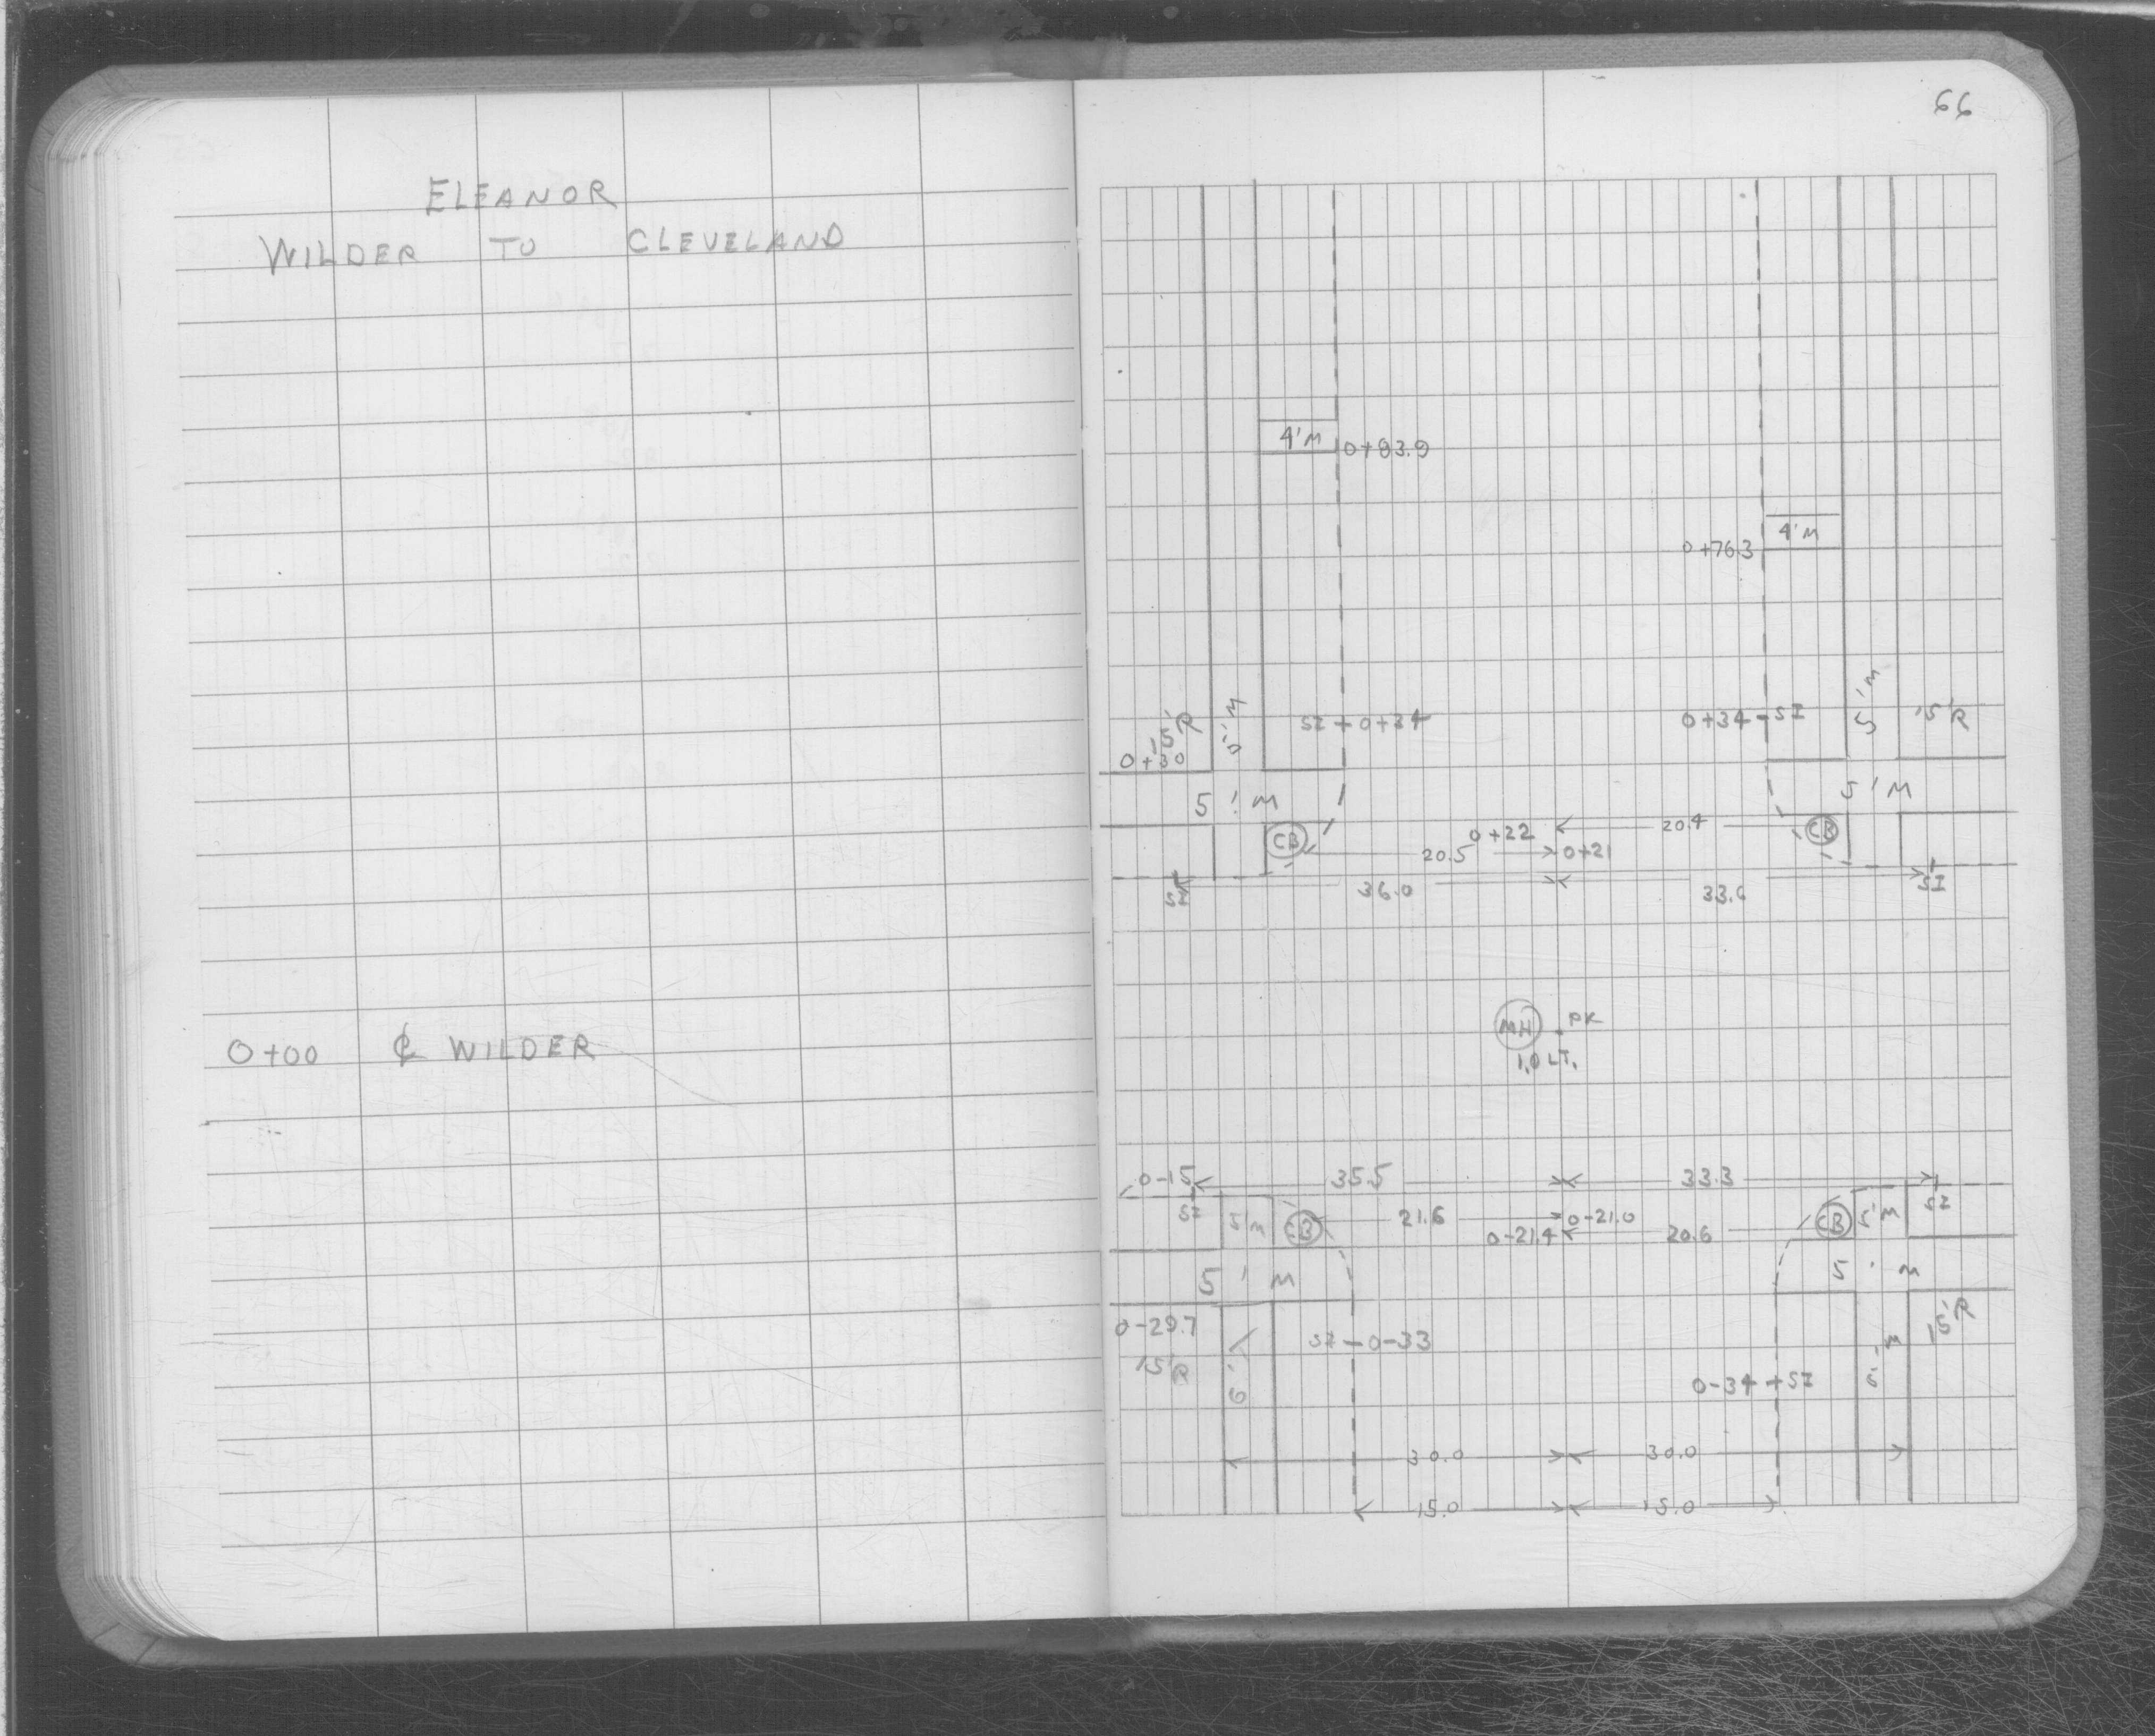 ELEANOR
WILDER TO CLEVELAND
0+00 ℄ WILDER
66
4'M 0+83.9
4'M
0+76.3
15'R 5'M SI 0+34 0+34 SI 5'M 15'R
0+30
5'M 5'M
CB 0+22 20.4 CB
20.5 0+21
SI 36.0 33.6 SI
MH PK
1.0 LT.
0-15 35.5 33.3
SI 5'M CB 21.6 0-21.0 CB 5'M SI
0-21.4 20.6
5'M 5'M
0-29.7 SI 0-33 15'R
15'R M
0-34 SI
30.0 30.0
15.0 15.0